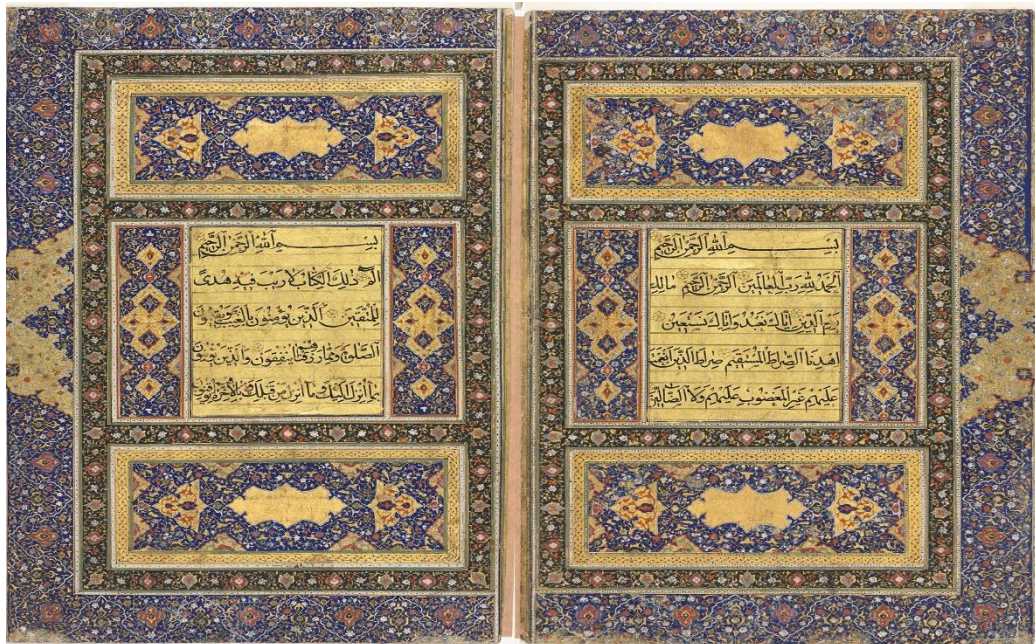 بسم الله الرحمن الرحيم
الحمد لله رب العالمين الرحمن الرحيم مالك
يوم الدين اياك نعبد واياك نستعين
اهدنا الصراط المستقيم صراط الذين انعمت
عليهم غير المغضوب عليهم ولا الضالين
بسم الله الرحمن الرحيم
الم ذلك الكتاب لا ريب فيه هدى
للمتقين الذين يؤمنون بالغيب ويقيمون
الصلوة ومما رزقناهم ينفقون والذين يؤمنون
بما انزل اليك وما انزل من قبلك وبالاخرة هم يوقنون